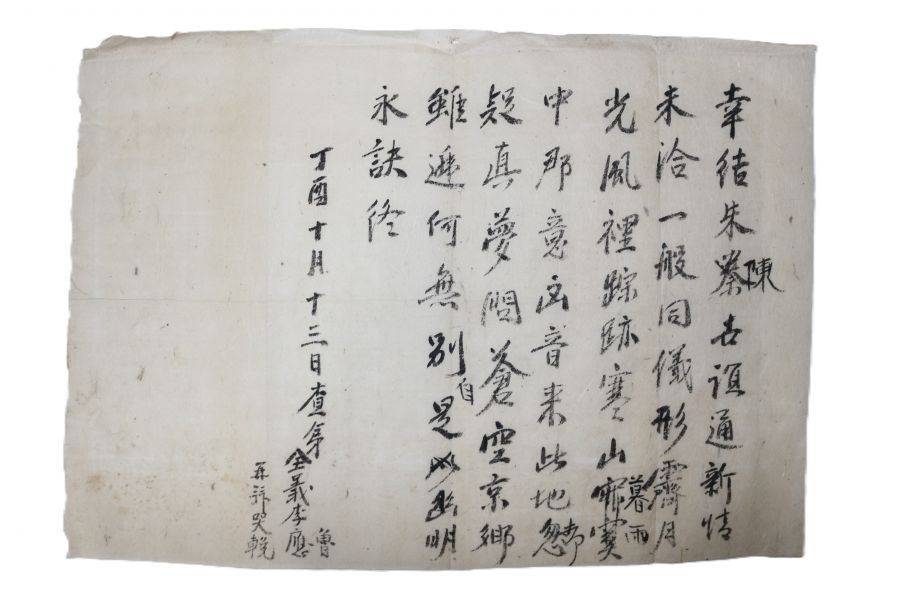 幸結朱蔡陳古誼通新情
未洽一般同儀形霽月
光風裡踪跡寒山寂寞暮雨
中那意凶音来此地忽却
疑真夢問蒼空京鄉
雖遞何無別自是以幽明
永訣終
丁酉十月十三日査弟全義李應魯
再拜哭輓